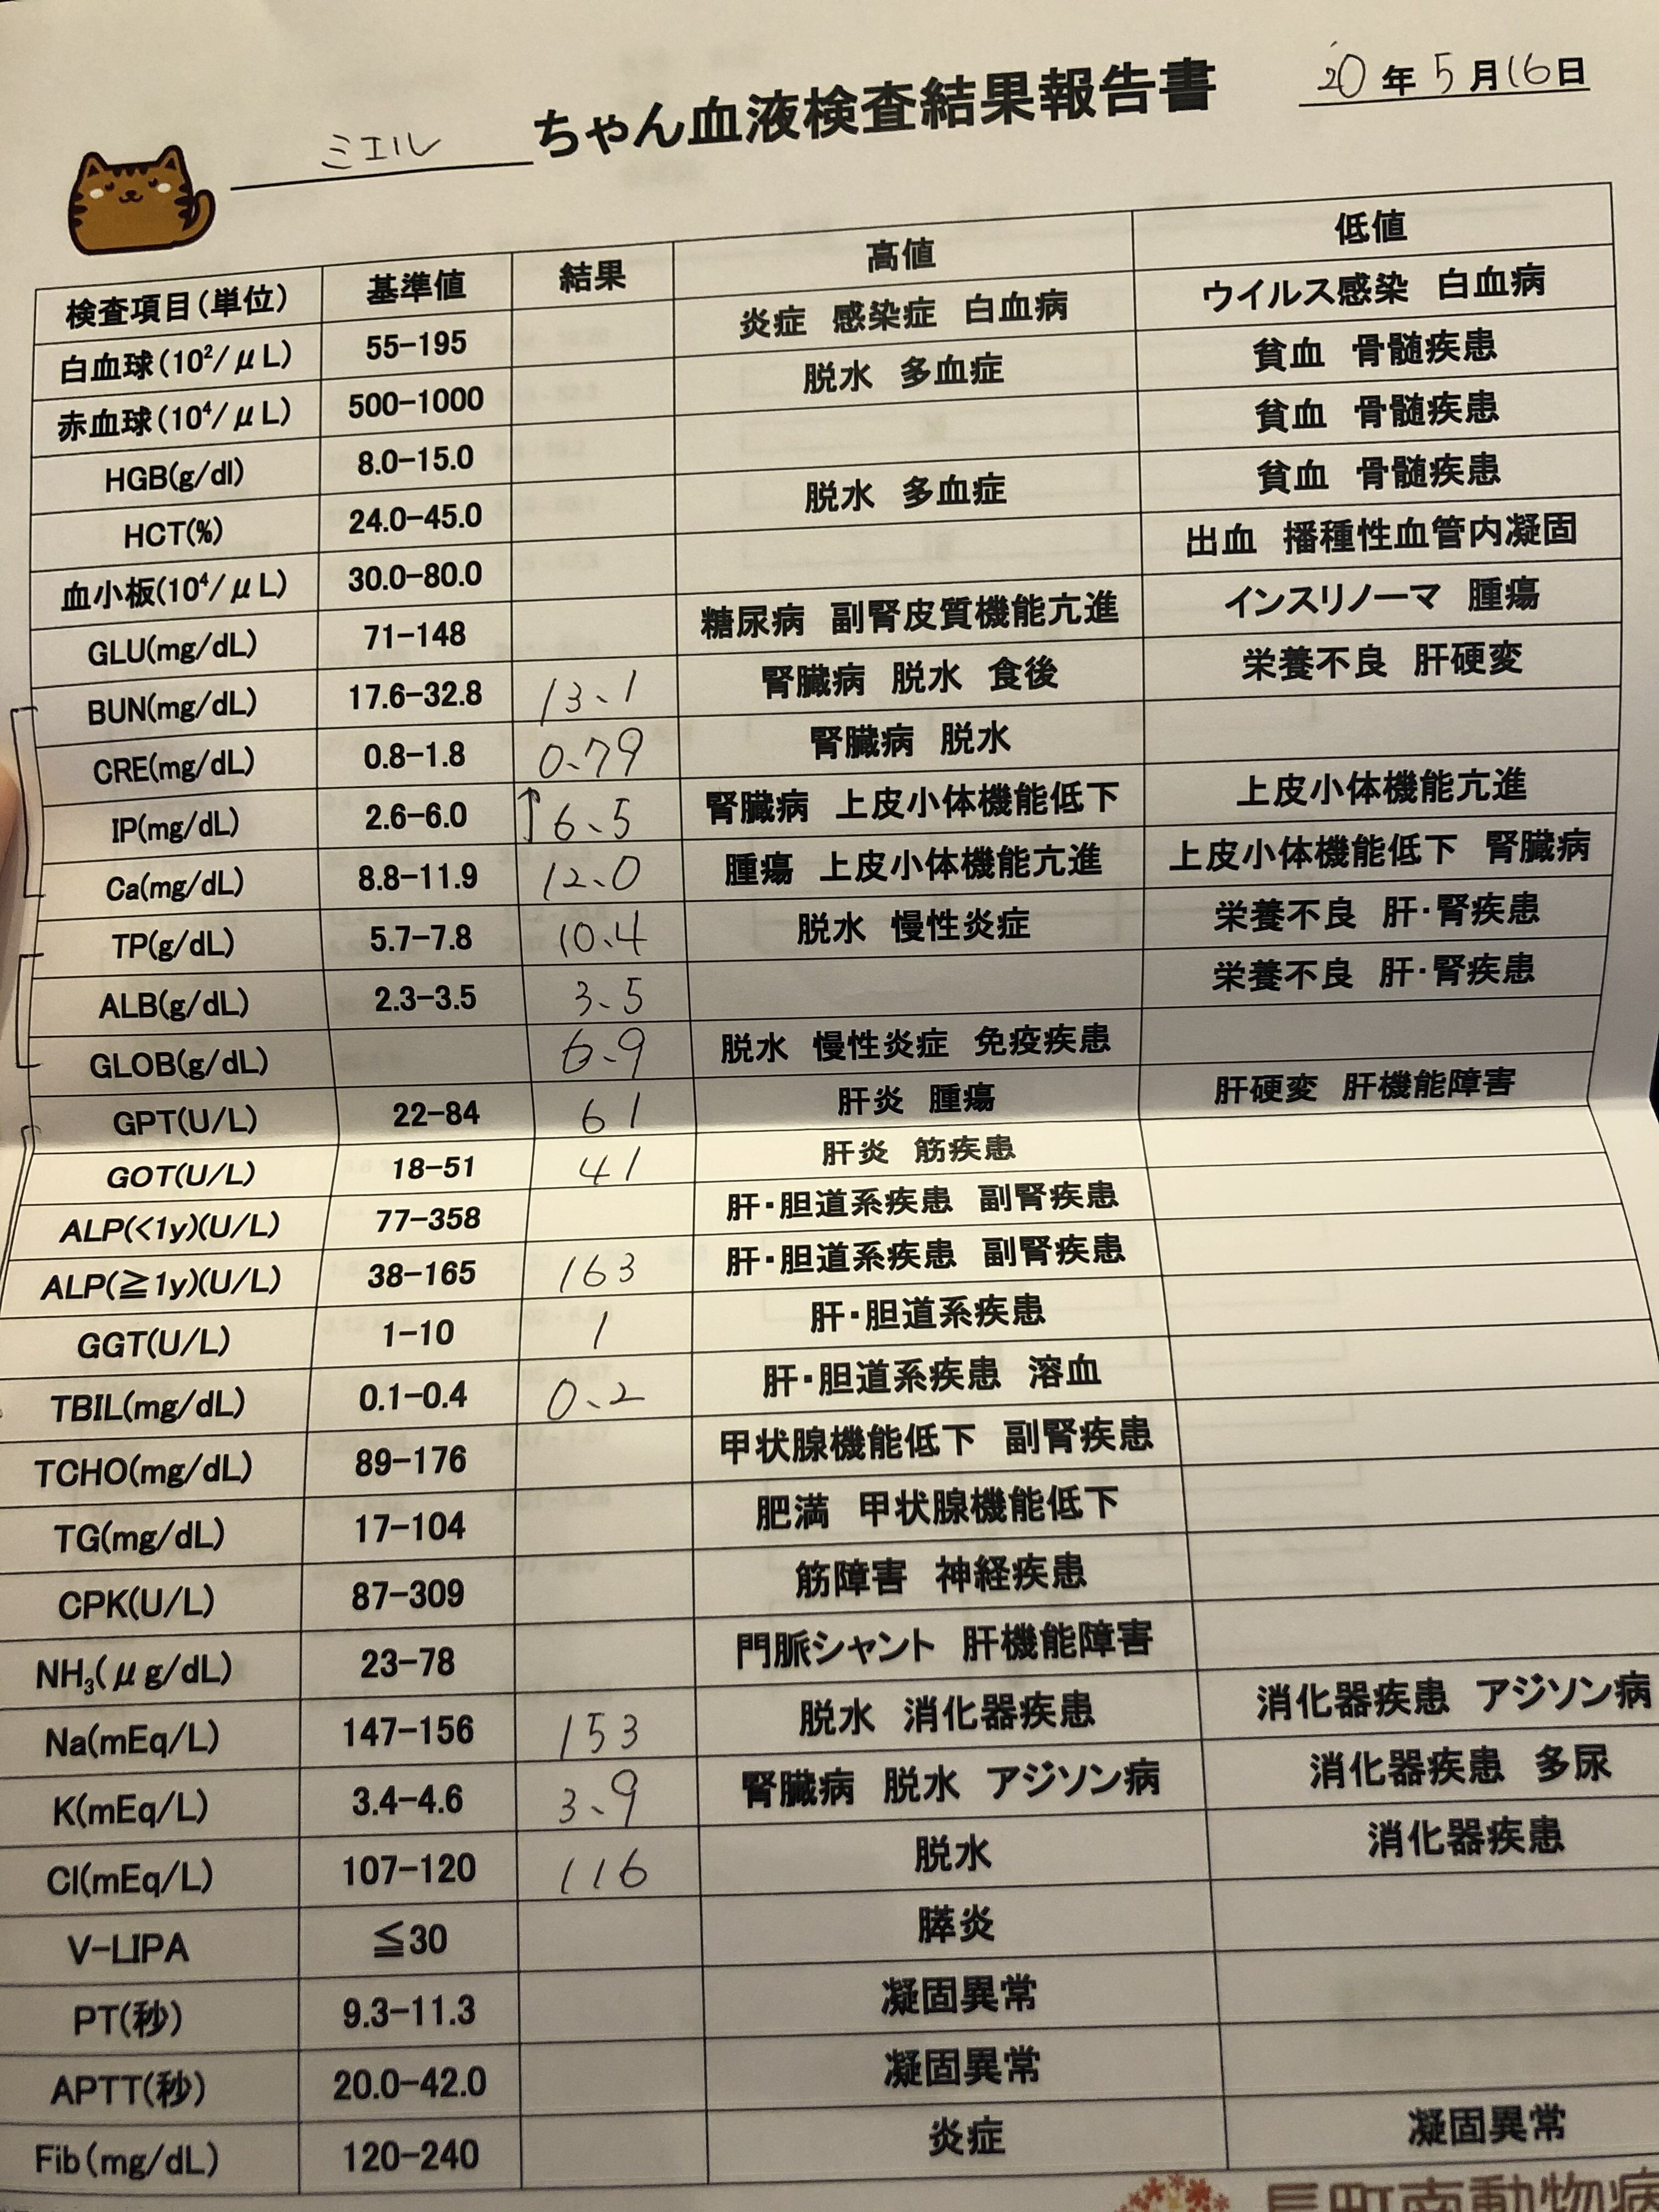 20年5月16日
ミエル ちゃん血液検査結果報告書
検査項目(単位) 基準値 結果 高値 低値
白血球(10²/μL) 55-195 炎症 感染症 白血病 ウイルス感染 白血病
赤血球(10⁴/μL) 500-1000 脱水 多血症 貧血 骨髄疾患
HGB(g/dl) 8.0-15.0 貧血 骨髄疾患
HCT(%) 24.0-45.0 脱水 多血症 貧血 骨髄疾患
血小板(10⁴/μL) 30.0-80.0 出血 播種性血管内凝固
GLU(mg/dL) 71-148 糖尿病 副腎皮質機能亢進 インスリノーマ 腫瘍
BUN(mg/dL) 17.6-32.8 13.1 腎臓病 脱水 食後 栄養不良 肝硬変
CRE(mg/dL) 0.8-1.8 0.79 腎臓病 脱水
IP(mg/dL) 2.6-6.0 ↑6.5 腎臓病 上皮小体機能低下 上皮小体機能亢進
Ca(mg/dL) 8.8-11.9 12.0 腫瘍 上皮小体機能亢進 上皮小体機能低下 腎臓病
TP(g/dL) 5.7-7.8 10.4 脱水 慢性炎症 栄養不良 肝・腎疾患
ALB(g/dL) 2.3-3.5 3.5 栄養不良 肝・腎疾患
GLOB(g/dL) 6.9 脱水 慢性炎症 免疫疾患
GPT(U/L) 22-84 61 肝炎 腫瘍 肝硬変 肝機能障害
GOT(U/L) 18-51 41 肝炎 筋疾患
ALP(<1y)(U/L) 77-358 肝・胆道系疾患 副腎疾患
ALP(≧1y)(U/L) 38-165 163 肝・胆道系疾患 副腎疾患
GGT(U/L) 1-10 1 肝・胆道系疾患
TBIL(mg/dL) 0.1-0.4 0.2 肝・胆道系疾患 溶血
TCHO(mg/dL) 89-176 甲状腺機能低下 副腎疾患
TG(mg/dL) 17-104 肥満 甲状腺機能低下
CPK(U/L) 87-309 筋障害 神経疾患
NH₃(μg/dL) 23-78 門脈シャント 肝機能障害
Na(mEq/L) 147-156 153 脱水 消化器疾患 消化器疾患 アジソン病
K(mEq/L) 3.4-4.6 3.9 腎臓病 脱水 アジソン病 消化器疾患 多尿
Cl(mEq/L) 107-120 116 脱水 消化器疾患
V-LIPA ≦30 膵炎
PT(秒) 9.3-11.3 凝固異常
APTT(秒) 20.0-42.0 凝固異常
Fib(mg/dL) 120-240 炎症 凝固異常
長町南動物病